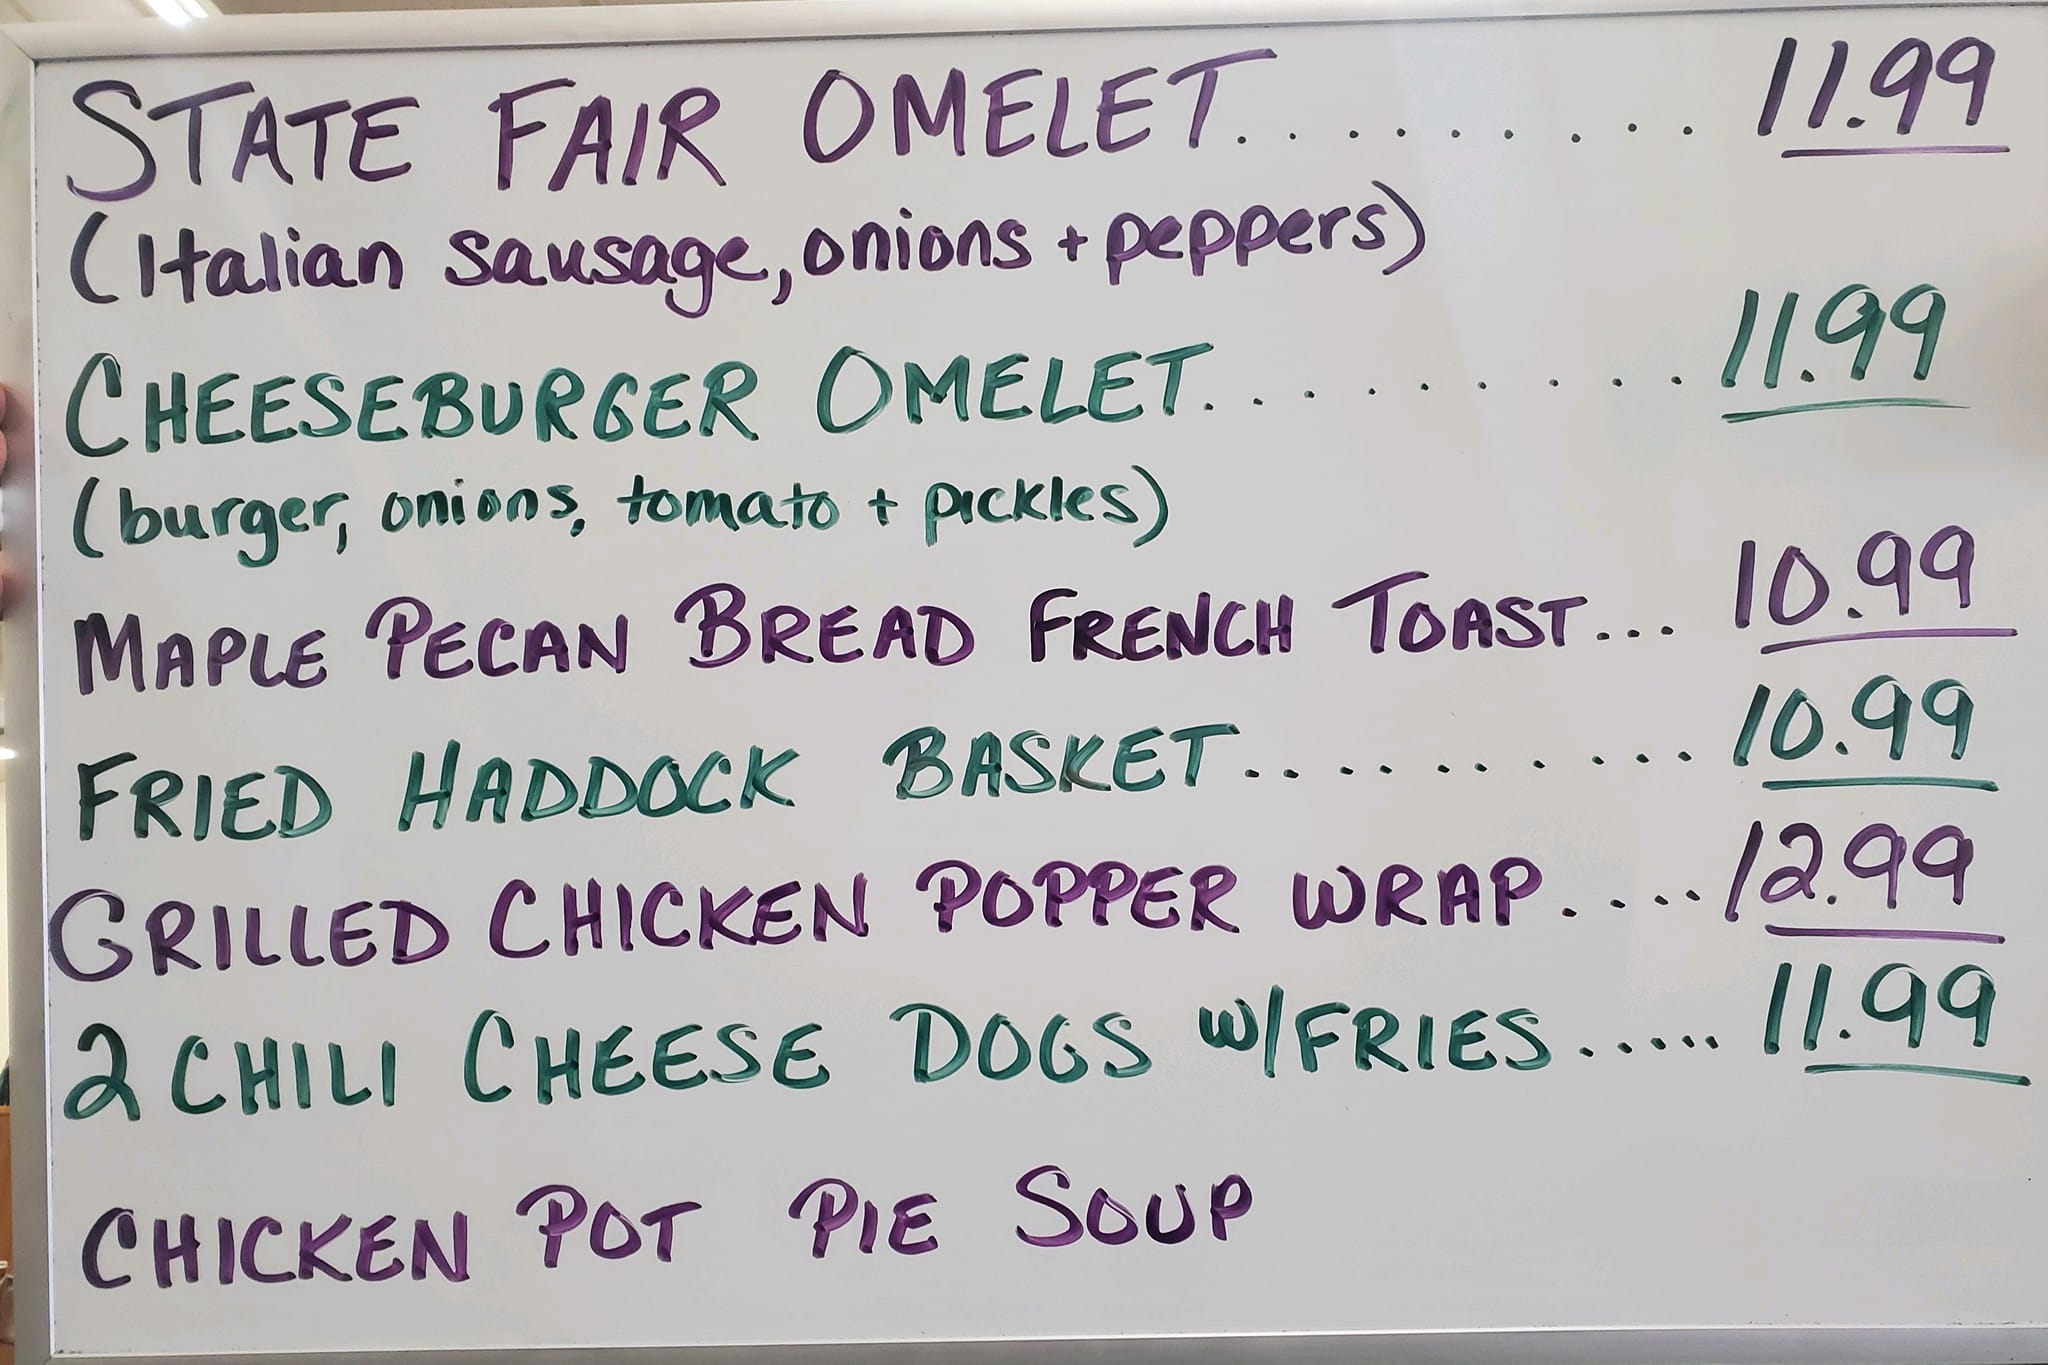 STATE FAIR OMELET.......... 11.99
(Italian sausage, onions + peppers)
CHEESEBURGER OMELET......... 11.99
(burger, onions, tomato + pickles)
MAPLE PECAN BREAD FRENCH TOAST... 10.99
FRIED HADDOCK BASKET.......... 10.99
GRILLED CHICKEN POPPER WRAP..... 12.99
2 CHILI CHEESE DOGS W/FRIES...... 11.99
CHICKEN POT PIE SOUP